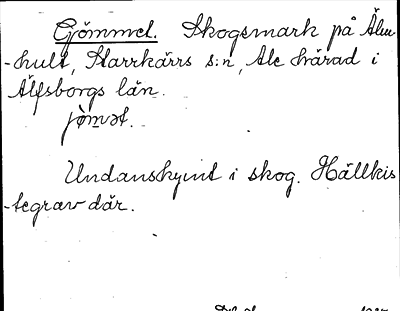 Gömmel. Skogsmark på Älm
-hult, Starrkärrs s:n, Ale härad i
Älfsborgs län.
jömət.
Undanskymt i skog. Hällkis
-tegrav där.